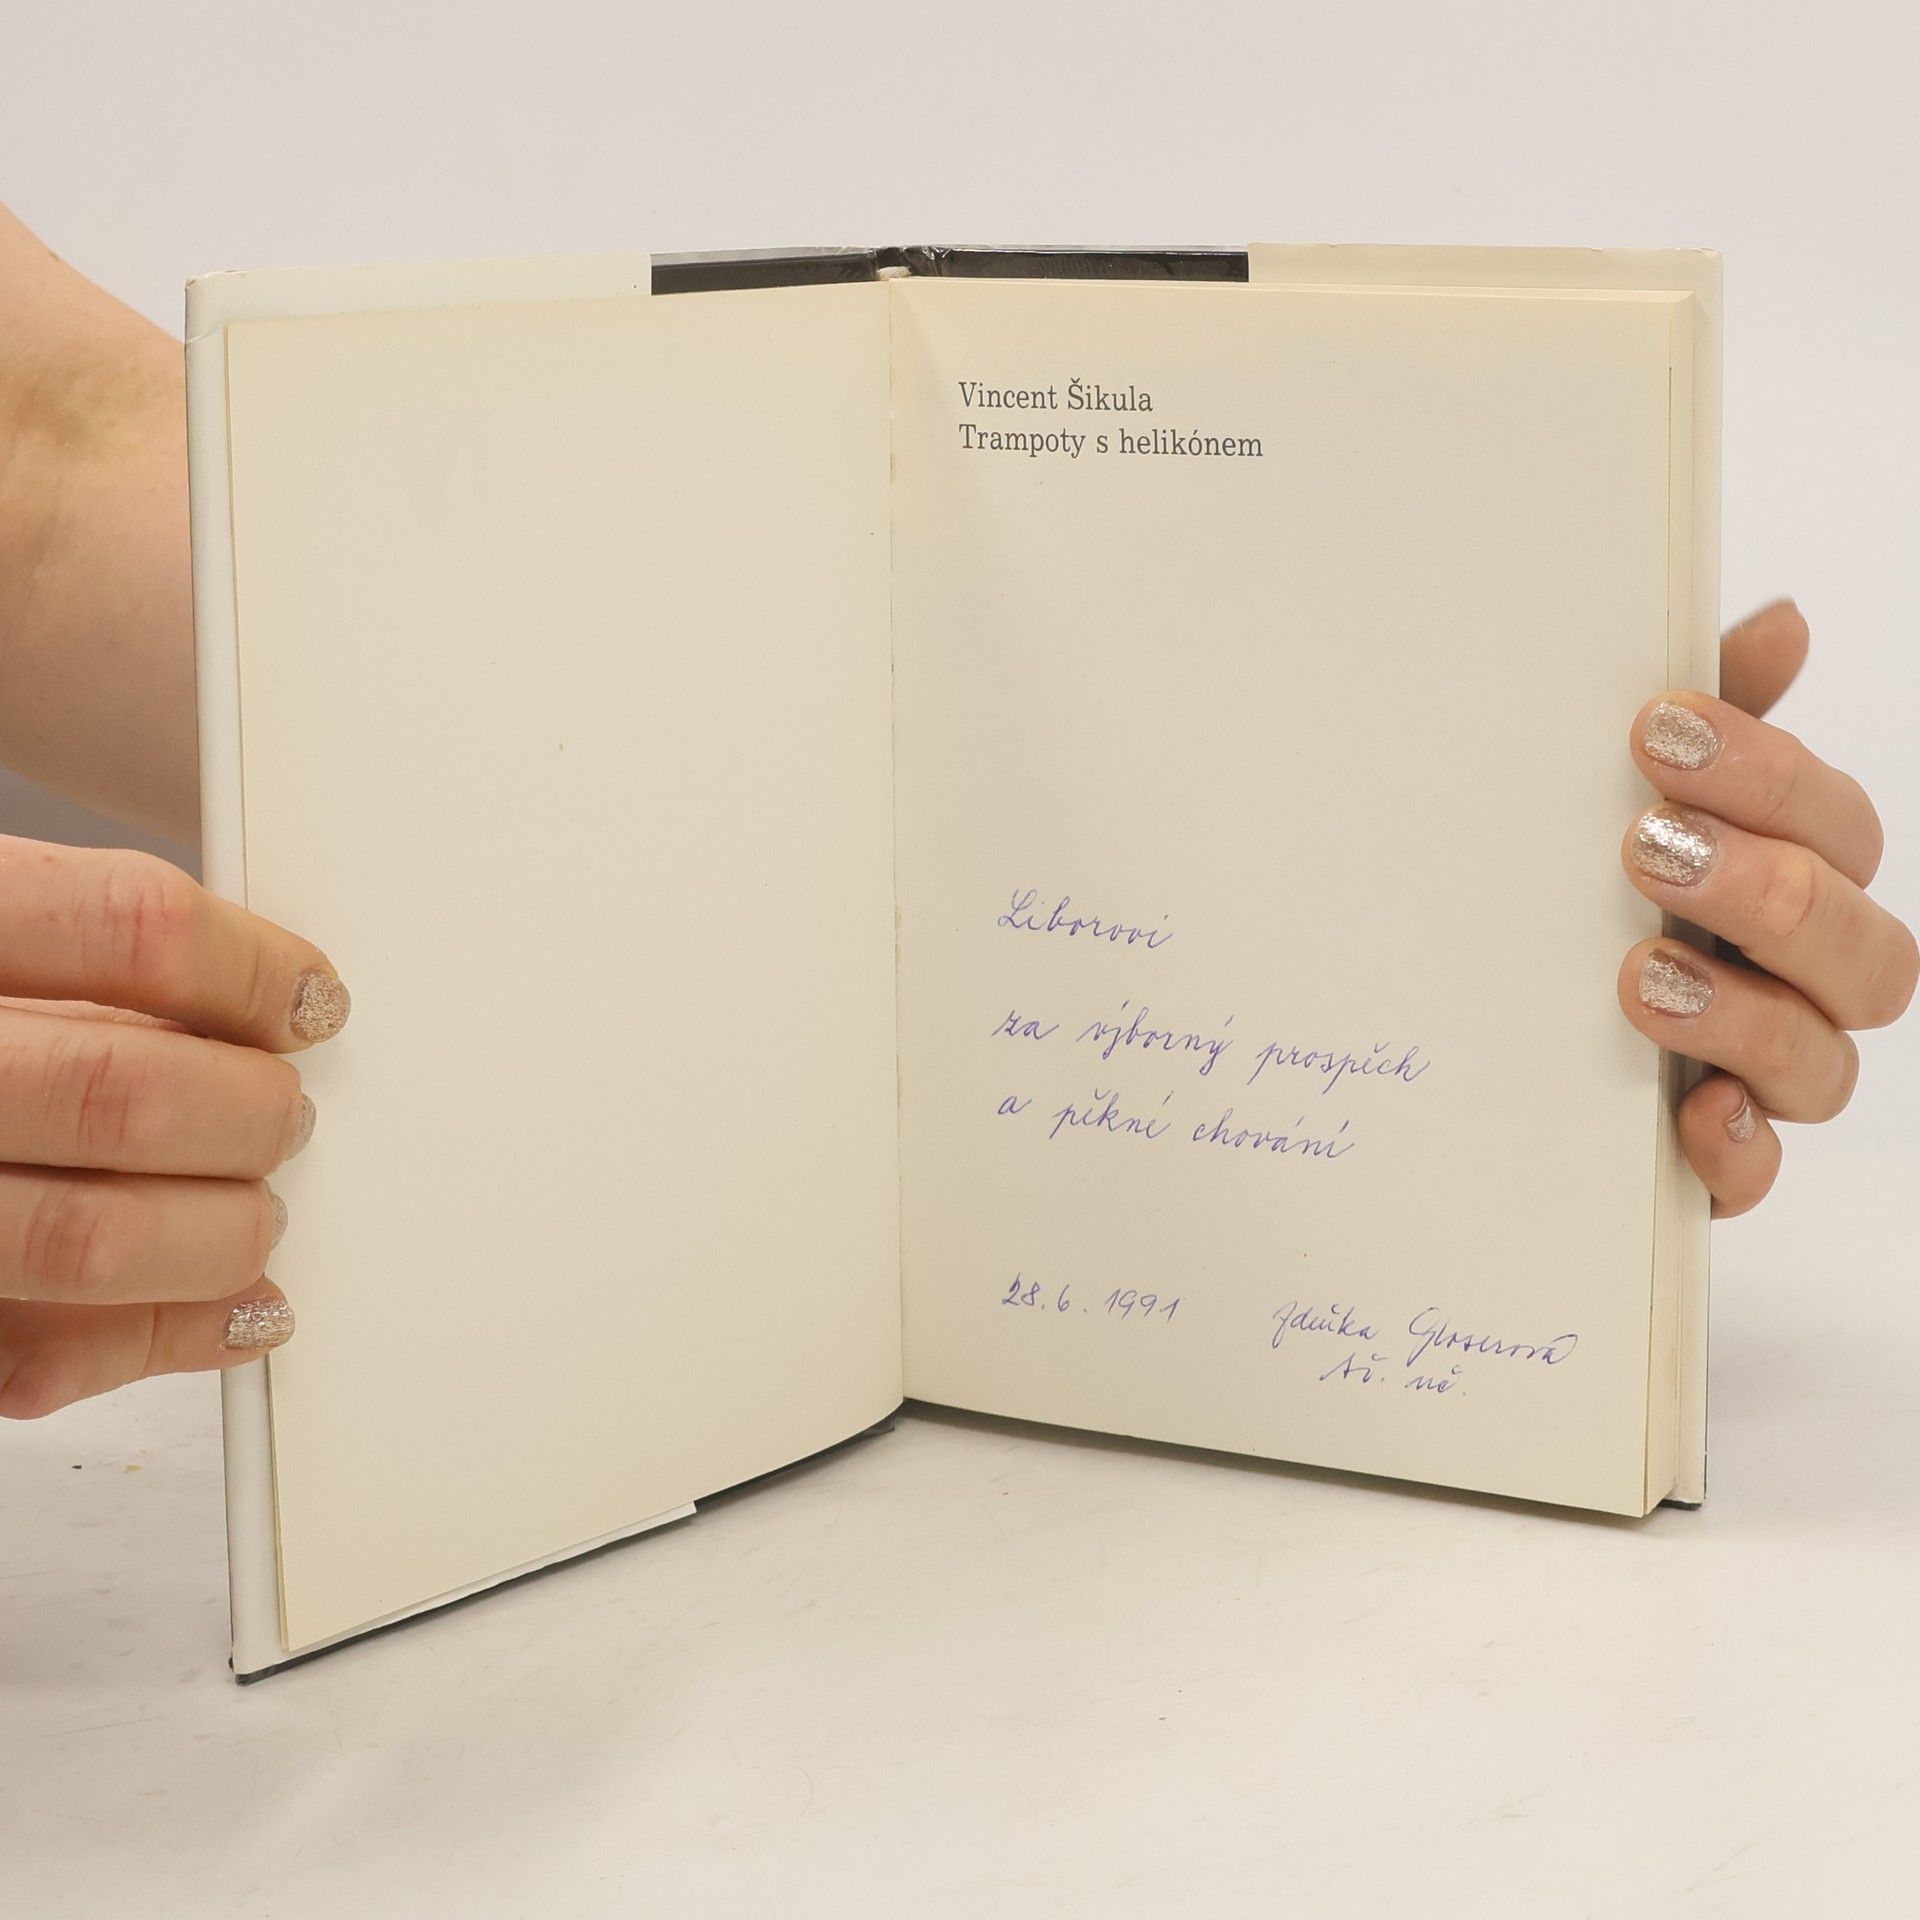 Vincent Šikula
Trampoty s helikónem
Liborovi
za výborný prospěch
a pěkné chování
28. 6. 1991 Zdeňka Gloserová
tř. uč.